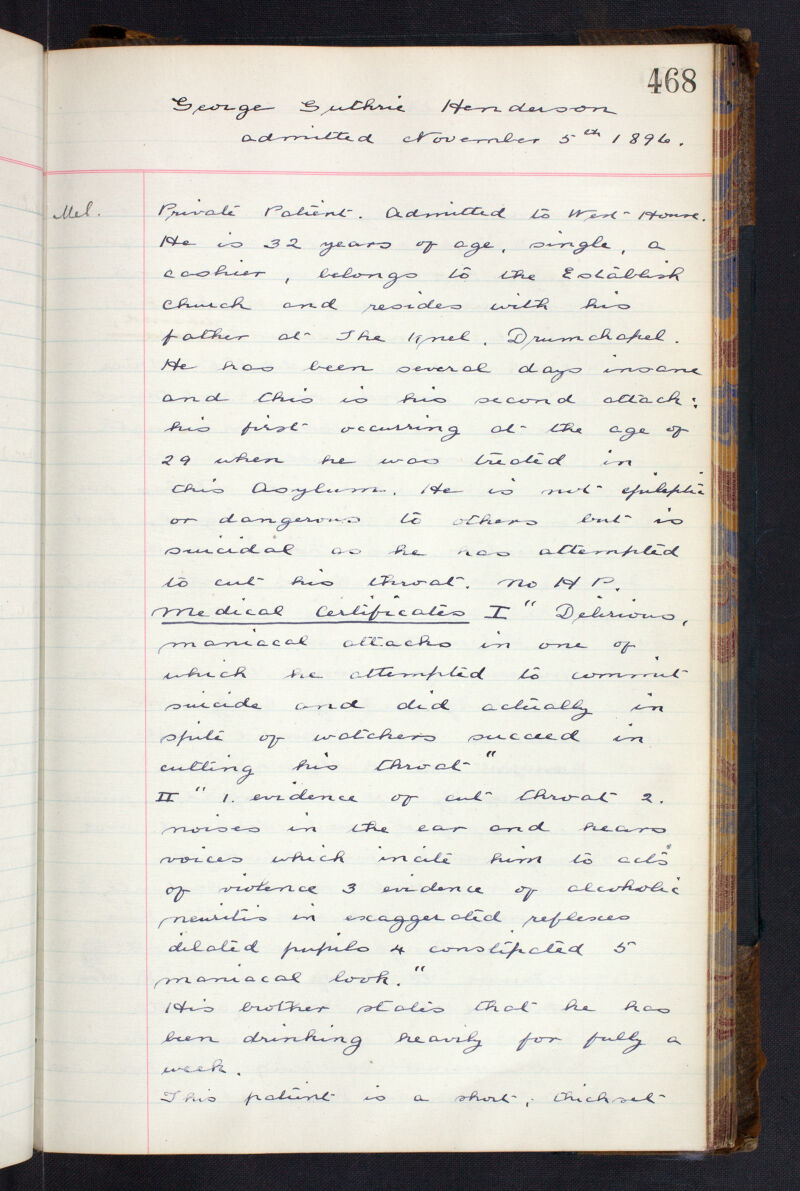 468
George Guthrie Henderson
admitted November 5th 1896.
Mel. Private Patient. Admitted to West House.
He is 32 years of age, single, a
cashier, belongs to the Establish
Church and resides with his
father at The Knel. Drumchapel.
He has been several days insane
and this is his second attack:
his first occurring at the age of
29 when he was treated in
this Asylum. He is not epileptic
or dangerous to others but is
suicidal as he has attempted
to cut his throat. No H P.
Medical Certificates I " Delirious,
maniacal attacks in one of
which he attempted to commit
suicide and did actually in
spite of watchers succeed in
cutting his throat "
II " 1. evidence of cut throat 2.
noises in the ear and hears
voices which incite him to acts
of violence 3 evidence of alcoholic
neuritis in exaggerated reflexes
dilated pupils 4 constipated 5
maniacal look."
His brother states that he has
been drinking heavily for fully a
week.
This patient is a short, thickset